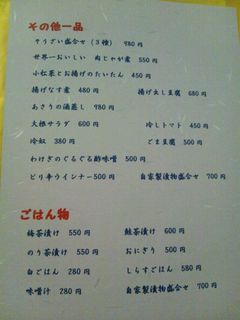 その他一品
そうざい盛合せ（３種） 980円
世界一おいしい 肉じゃが煮 550円
小松菜とお揚げのたいたん 450円
揚げなす煮 480円 揚げだし豆腐 680円
あさりの酒蒸し 980円
大根サラダ 600円 冷しトマト 450円
冷奴 380円 ごま豆腐 500円
わけぎのぐるぐる酢味噌 500円
ピリ辛ウインナー500円 自家製漬物盛合せ 700円
ごはん物
梅茶漬け 550円 鮭茶漬け 600円
のり茶漬け 550円 おにぎり 500円
白ごはん 280円 しらすごはん 580円
味噌汁 280円 自家製漬物盛合せ 700円